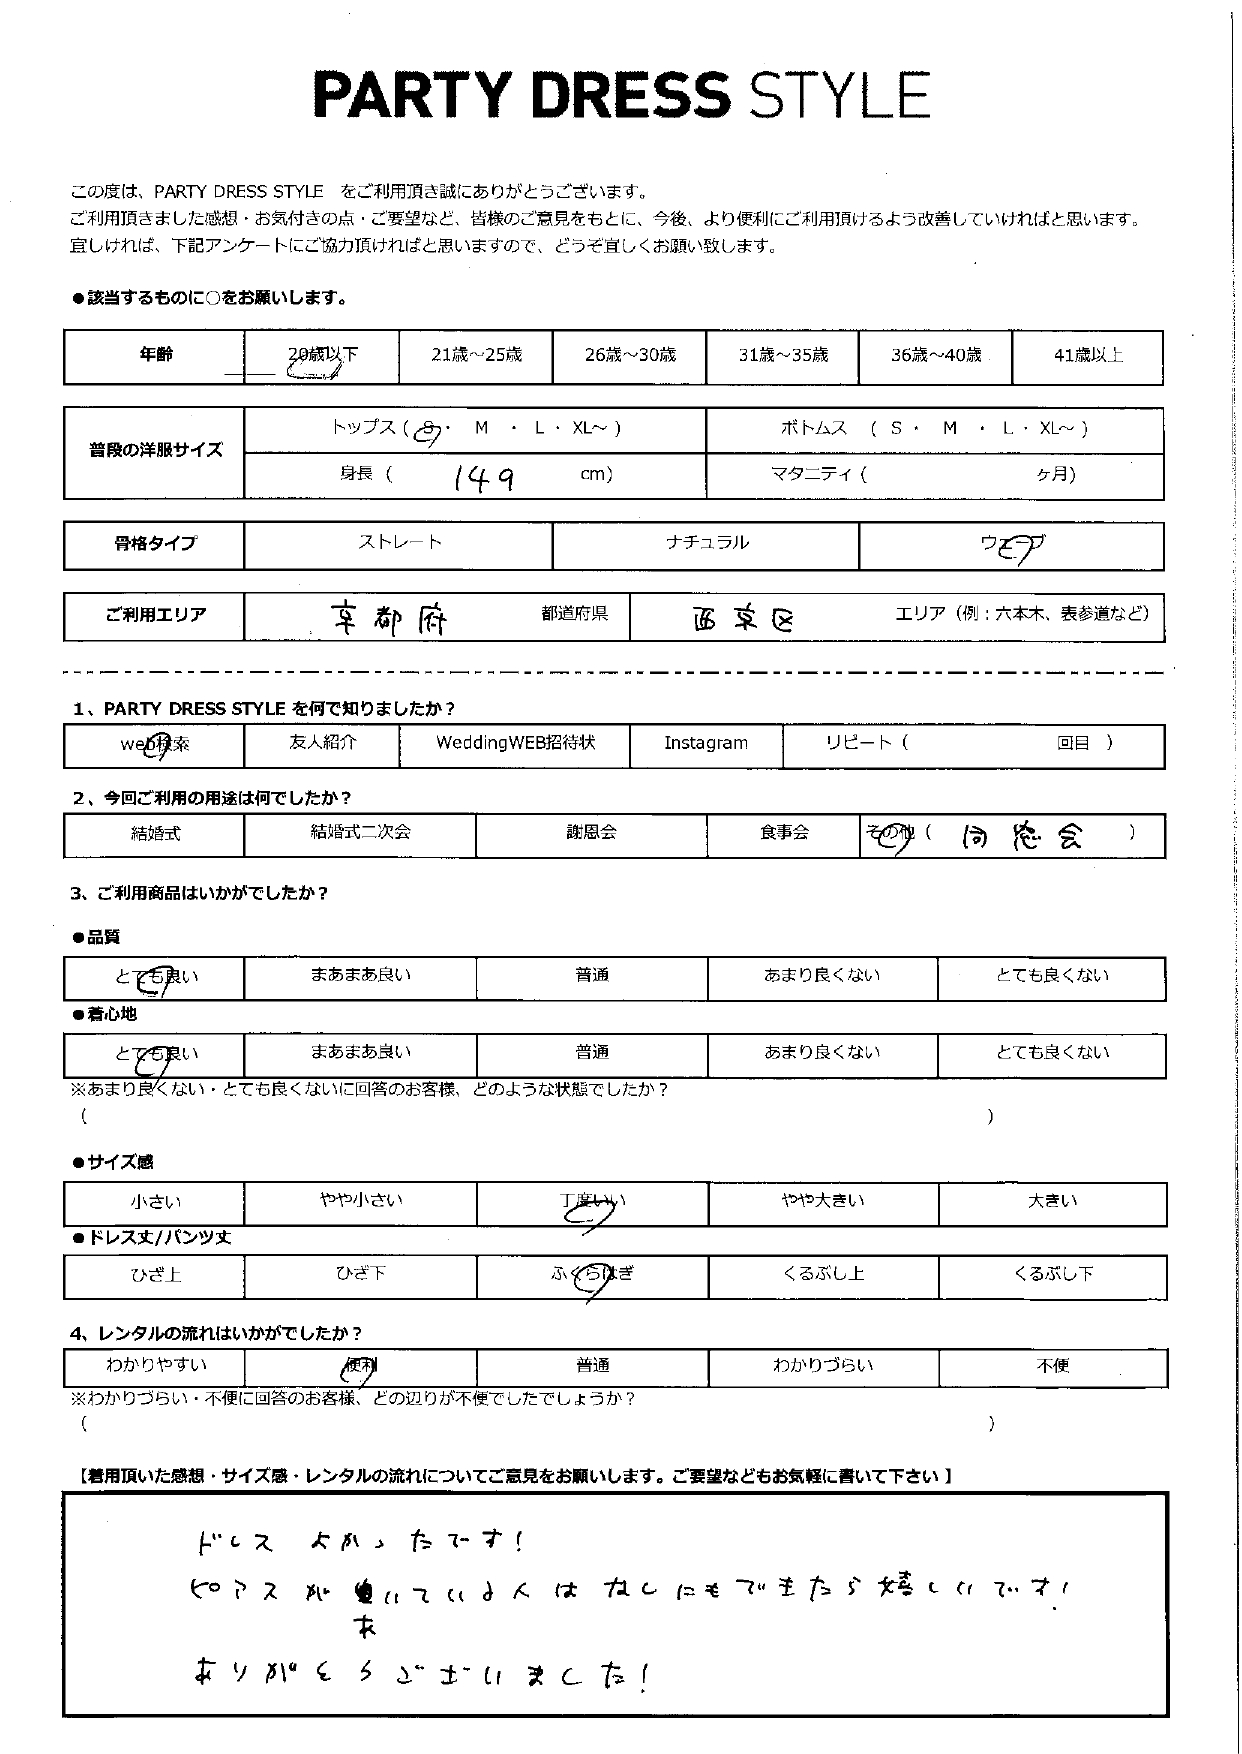 PARTY DRESS STYLE
この度は、PARTY DRESS STYLE をご利用頂き誠にありがとうございます。
ご利用頂きました感想・お気付きの点・ご要望など、皆様のご意見をもとに、今後、より便利にご利用頂けるよう改善していければと思います。
宜しければ、下記アンケートにご協力頂ければと思いますので、どうぞ宜しくお願い致します。
●該当するものに○をお願いします。
年齢 20歳以下 21歳～25歳 26歳～30歳 31歳～35歳 36歳～40歳 41歳以上
普段の洋服サイズ トップス ( S ・ M ・ L ・ XL～ ) ボトムス ( S ・ M ・ L ・ XL～ )
身長 ( 149 cm) マタニティ ( ヶ月)
骨格タイプ ストレート ナチュラル ウェーブ
ご利用エリア 京都府 都道府県 西京区 エリア（例：六本木、表参道など）
1、PARTY DRESS STYLE を何で知りましたか？
web検索 友人紹介 WeddingWEB招待状 Instagram リピート ( 回目 )
2、今回ご利用の用途は何でしたか？
結婚式 結婚式二次会 謝恩会 食事会 その他 ( 同窓会 )
3、ご利用商品はいかがでしたか？
●品質
とても良い まあまあ良い 普通 あまり良くない とても良くない
●着心地
とても良い まあまあ良い 普通 あまり良くない とても良くない
※あまり良くない・とても良くないに回答のお客様、どのような状態でしたか？
( )
●サイズ感
小さい やや小さい 丁度いい やや大きい 大きい
●ドレス丈/パンツ丈
ひざ上 ひざ下 ふくらはぎ くるぶし上 くるぶし下
4、レンタルの流れはいかがでしたか？
わかりやすい 便利 普通 わかりづらい 不便
※わかりづらい・不便に回答のお客様、どの辺りが不便でしたでしょうか？
( )
【着用頂いた感想・サイズ感・レンタルの流れについてご意見をお願いします。ご要望などもお気軽に書いて下さい 】
ドレス よかったです！
ピアスが いている人は なしにもできたら嬉しいです！
あ
ありがとうございました！